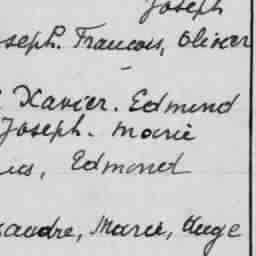 Joseph
seph. Francois, Olivier
Xavier. Edmond
Joseph. Marie
Edmond
xandre, Marie, Auge